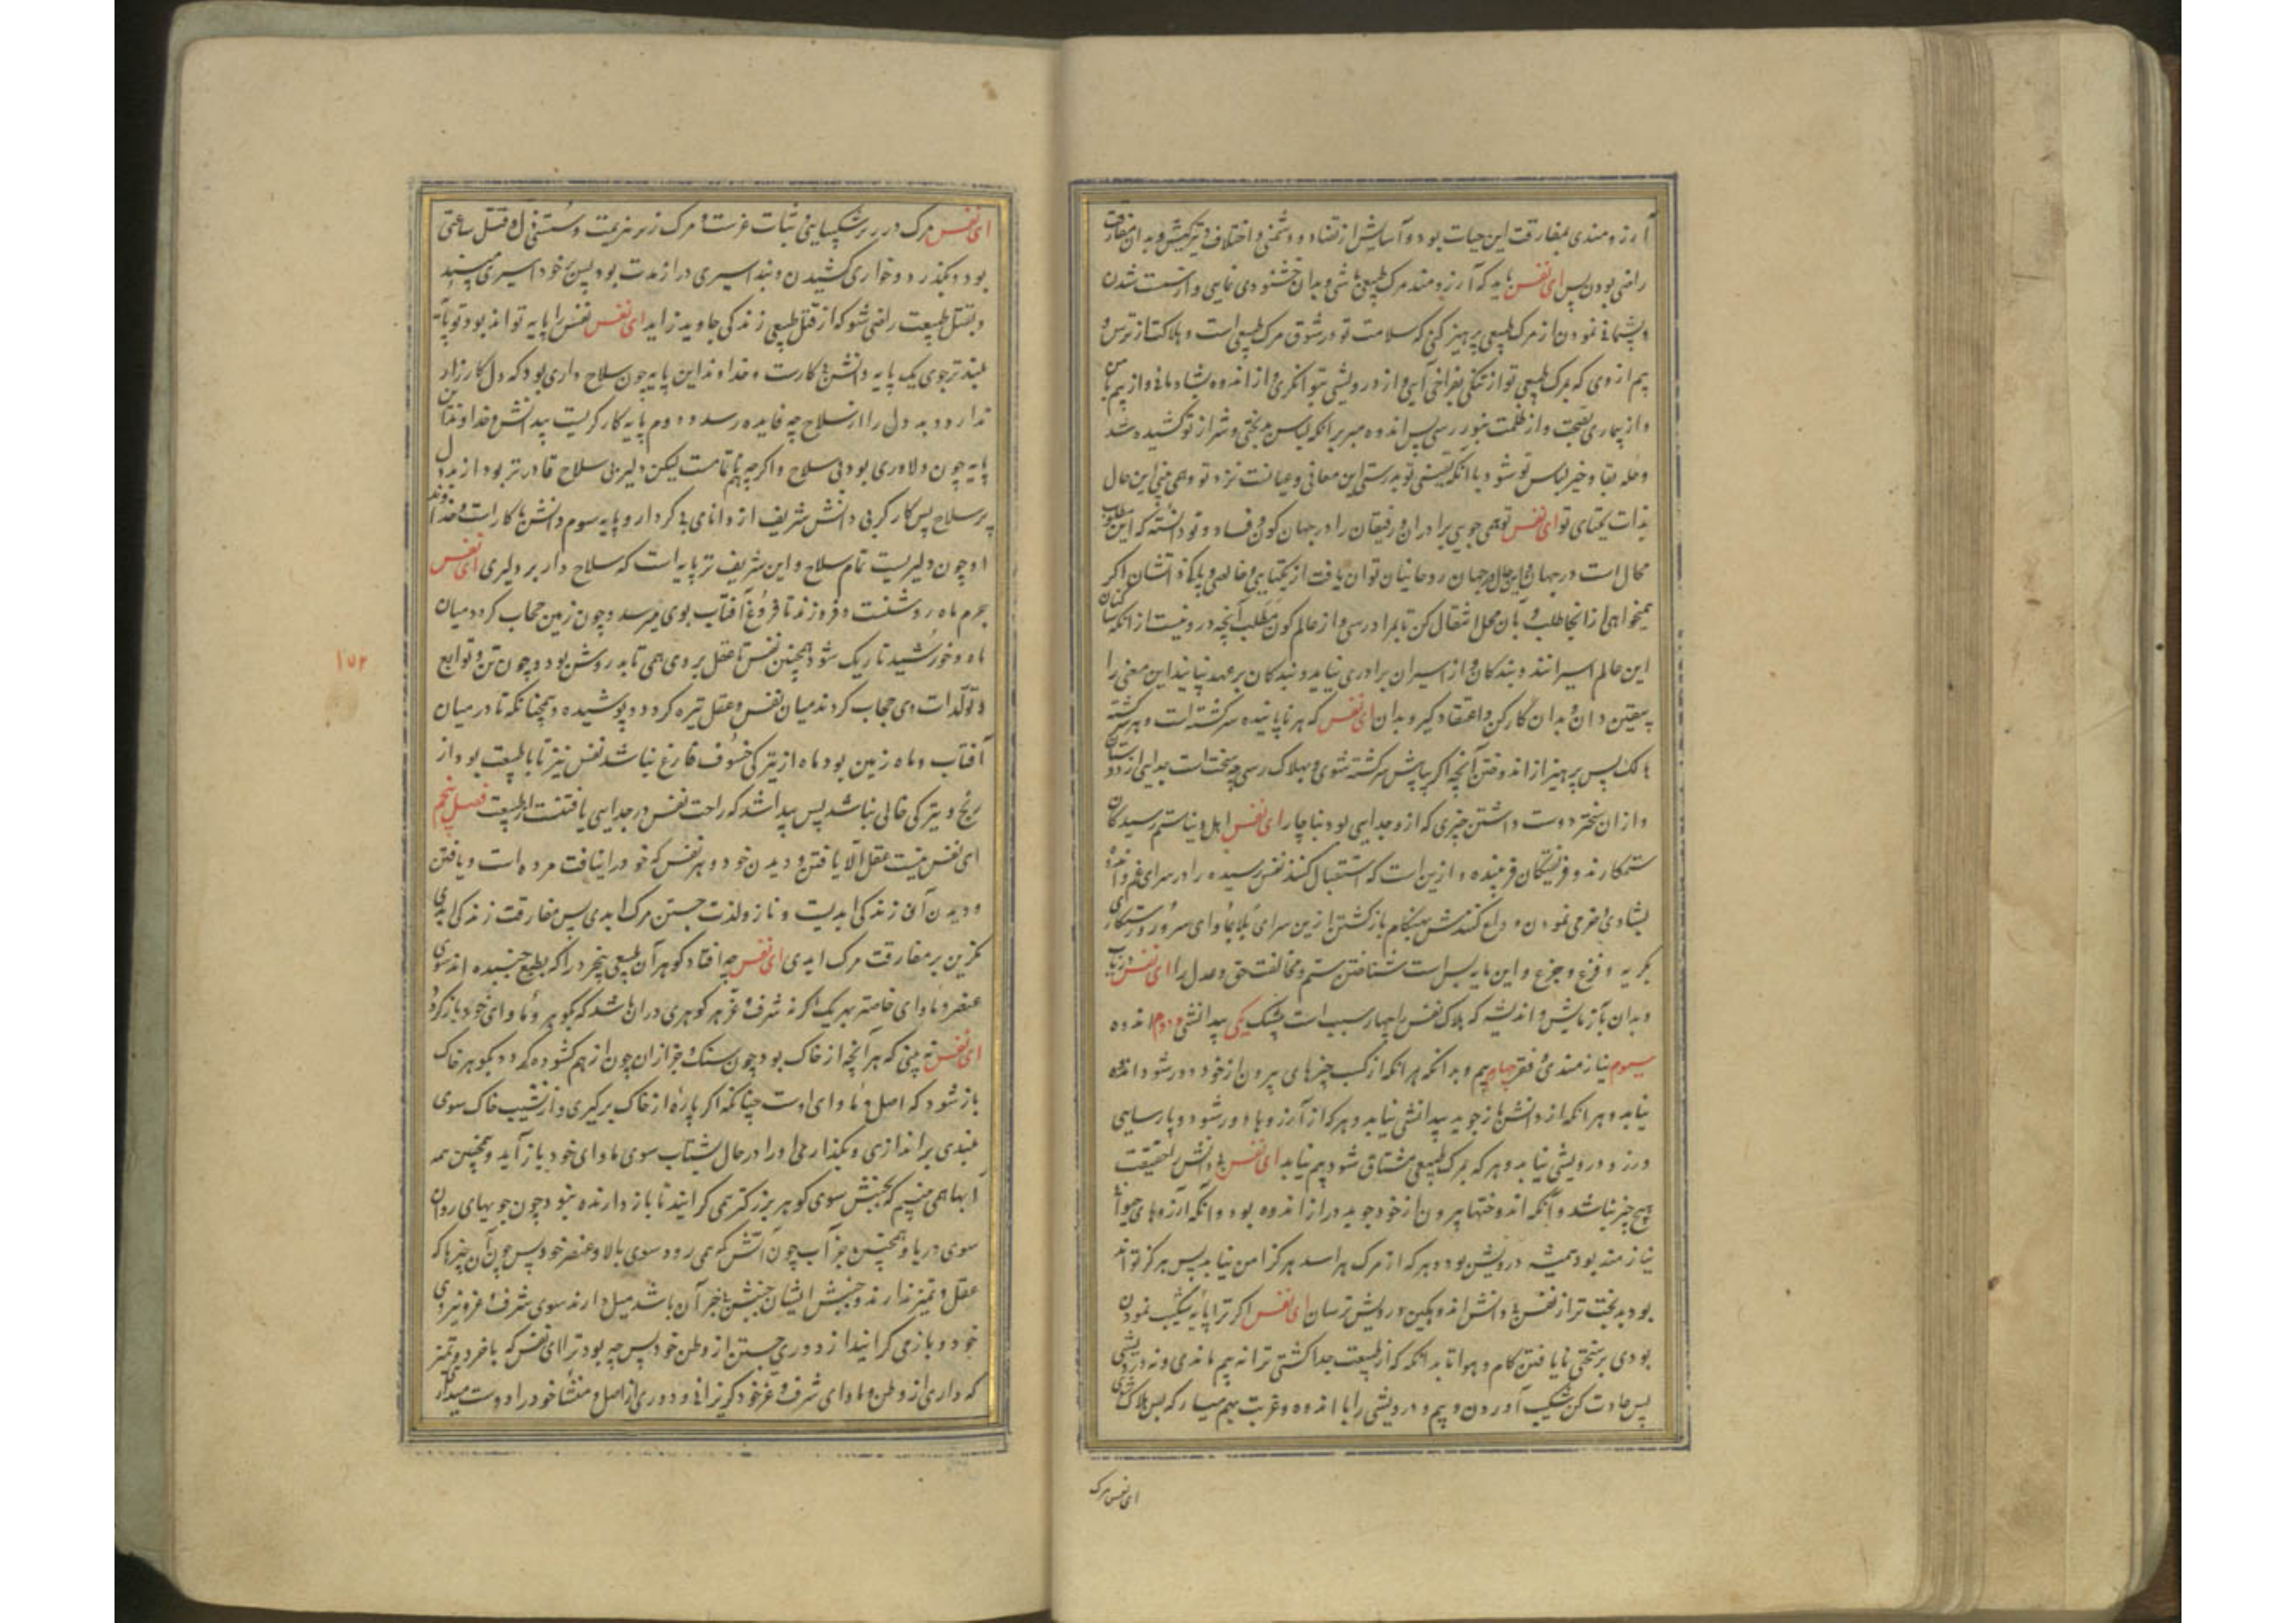 آرزومندی بمفارقت این حیات بود و آسایش از تضاد و دشمنی و اختلاف و تیرکیش و بدان مفارقت
راضی بودن پس ای نفس باید که آرزومند مرک طبیعی باشی و بدان خشنودی نمایی و از سست شدن
و پشمانی نمودن از مرک طبیعی پرهیز کنی که سلامت تو در شوق مرک طبیعی است و هلاکت از ترس و
بیم از وی که بمرک طبیعی تو از تنکی بفراخی آیی و از درویشی بتوانکری و از اندوه بشادمانی و از بیم بامن
و از بیماری بصحت و از ظلمت بنور رسی پس اندوه مبر برانکه لباس بدبختی و شر از تو کشیده شد
و حله بقا و خیر لباس تو شود با آنکه یقینی تو بدرستی این معانی و عیانست نزد تو و همی بینی این حال
بذات یکتای تو ای نفس تو همی جویی برادران و رفیقان را در جهان کون و فساد و تو دانسته که این مطلوب
محال است در جهان روحانیان توان یافت از یکتایی و خالصی و پاکی ذاتشان اکر
میخواهی از آنجا طلب و بآن محل انتقال کن تا بمراد رسی و از عالم کون مطلب آنچه درو نیست از انکه ساکنان
این عالم اسیرانند و بندکان و از اسیران برادری نیاید و بندکان بر عهد نپایند این معنی را
بیقین دان و بدان کار کن و اعتقاد کیر و بدان ای نفس که هر ناپاینده سرکشته است و هر سرکشته
هالک پس پرهیز از اندوختن آنچه اکر بیابیش سرکشته شوی و بهلاک رسی چه سختست جدایی از دوستان
و از ان سختر دوست داشتن چیزی که ازو جدایی بود بناچار ای نفس اهل دنیا ستم رسیدکان
ستمکارند و فریفتکان فریبنده و ازین است که استقبال کنند نفس رسیده را در سرای غم و اندوه
بشادی و خرمی نمودن و وداع کنندش بهنکام بازکشتن ازین سرای بلا بماوای سرور و رستکاری
بکریه و فزع و جزع و این مایه بس است شناختن ستم و مخالفت حق و عدل را ای نفس دریاب
و بدان بآزمایش و اندیشه که هلاک نفس را چهار سبب است بیشک یکی بیدانشی و دوم اندوه
سیوم نیازمندی و فقر چهارم بیم و بدانکه هرانکه از کسب چیزهای بیرون از خود دور شود اندوه
نیابد و هرانکه از دانش باز جوید بیدانشی نیابد و هرکه از آرزوها دور شود و پارسایی
ورزد درویشی نیابد و هرکه بمرک طبیعی مشتاق شود بیم نیابد ای نفس بی دانش را حقیقت
هیچ چیز نباشد و آنکه اندوختها بیرون از خود جوید دراز اندوه بود و آنکه آرزوهای حیوانی
نیازمند بود همیشه درویش بود و هرکه از مرک هراسد هرکز امن نیابد پس هرکز تواند
بود بدبخت تر از نفس بی دانش اندوهکین درویش ترسان ای نفس اکر ترا پایه شکیب نمودن
بودی بر سختی نایافتن کام و هوا تا بدانکه که از طبیعت جدا کشتی ترا نه بیم ماندی و نه درویشی
پس عادت کن شکیب آوردن و بیم و درویشی را با اندوه و غربت بهم میار که بس هلاک شوی
ای نفس مرک
ای نفس مرک در زیر شکیبایی و ثبات عزست و مرک زیر هزیمت و سستی ذل و قتل ساعتی
بود و بکذرد و خواری کشیدن و بند اسیری دراز مدت بود پس بخود اسیری مپسند
و بقتل طبیعت راضی شو که از قتل طبیعی زندکی جاوید زاید ای نفس نفس را پایه تواند بود تو پایه
بلندتر جوی یک پایه دانش بی کارست و خداوند این پایه چون سلاح داری بود که دل کارزار
ندارد و بد دل را از سلاح چه فایده رسد و دوم پایه کارکریست بیدانش و خداوند این
پایه چون دلاوری بود بی سلاح و اکرچه ناتمامست لیکن دلیر بی سلاح قادرتر بود از بددل
پر سلاح پس کارکر بی دانش شریف از دانای بی کردار و پایه سوم دانش با کار است و خداوند
او چون دلیریست تمام سلاح و این شریف تر پایه است که سلاح دار بر دلیری ای نفس
جرم ماه روشنست و فروزنده تا فروغ آفتاب بوی میرسد و چون زمین حجاب کردد میان
ماه و خورشید تاریک شود همچنین نفس تا عقل بر وی همی تابد روشن بود و چون تن و توابع
و تولدات وی حجاب کردند میان نفس و عقل تیره کردد و پوشیده و همچنانکه تا در میان
آفتاب و ماه زمین بود ماه از تیرکی خسوف فارغ نباشد نفس نیز تا با طبیعت بود از
رنج و تیرکی خالی نباشد پس پیدا شد که راحت نفس در جدایی یافتنست از طبیعت فصل پنجم
ای نفس نیست عقل الا یافتن و دیدن خود و هر نفس که خود را نیافت مرده است و یافتن
و دیدن آن زندکی ابدیست و ناز و لذت جستن مرک ابدی پس مفارقت زندکی ابدی
مکزین بر مفارقت مرک ابدی ای نفس چه افتاد کوهر آن طبیعی بیخرد را که بطبع جنبیده اند سوی
عنصر و ماوای خاصه هریک اکر نه شرف و عز هر کوهری دران باشد که بکوهر و ماوای خود بازکردد
ای نفس نه بینی که هر آنچه از خاک بود چون سنک و جز ازان چون از هم کشوده کردد بکوهر خاک
باز شود که اصل و ماوای اوست چنانکه اکر پارهٔ از خاک برکیری و از نشیب خاک سوی
بلندی براندازی و بکذاری او را در حال بشتاب سوی ماوای خود باز آید و همچنین همه
آبها همی بینیم که بجنبش سوی کوهر بزرکتر همی کرایند تا باز دارنده نبود چون جویهای روان
سوی دریا و همچنین جز آب چون آتش که همی رود سوی بالا و عنصر خود پس چون آن چیزها که
عقل و تمیز ندارند و جنبش ایشان جنبش با خبر آن باشد میل دارند سوی شرف و عز و نیروی
خود و باز می کرایند از دوری جستن از وطن خود پس چه بود ترا ای نفس که با خرد و تمیز
که داری از وطن و ماوای شرف و عز خود کریزانی و دوری از اصل و منشأ خود را دوست میداری
۱۵۲